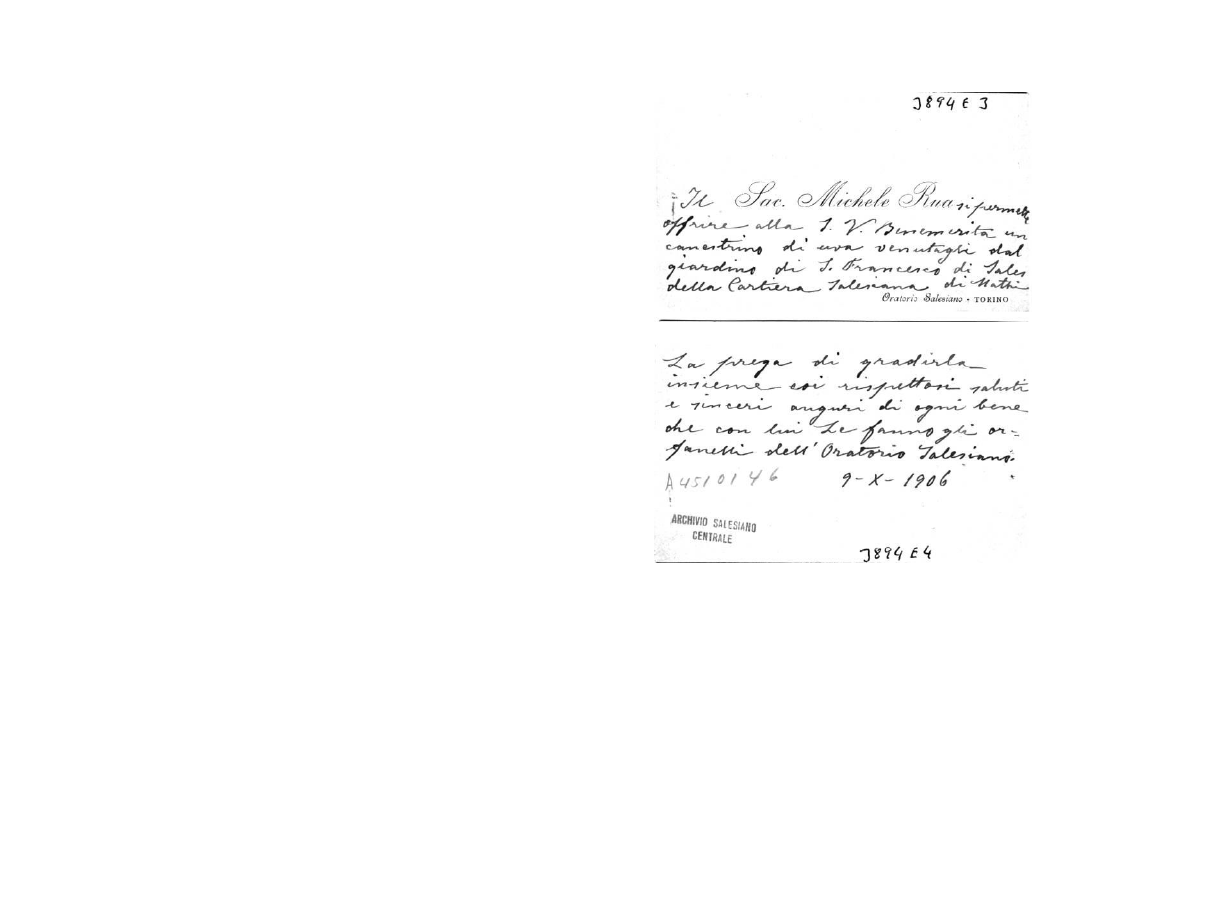 3894 E 3
Il Sac. Michele Rua si permette
offrire alla S. V. Benemerita un
canestrino di uva venutagli dal
giardino di S. Francesco di Sales
della Cartiera Salesiana di Mathi
Oratorio Salesiano - TORINO
La prega di gradirla
insieme coi rispettosi saluti
e sinceri auguri di ogni bene
che con lui Le fanno gli or=
fanelli dell'Oratorio Salesiano.
A4510146 9-X-1906
ARCHIVIO SALESIANO
CENTRALE
3894 E4